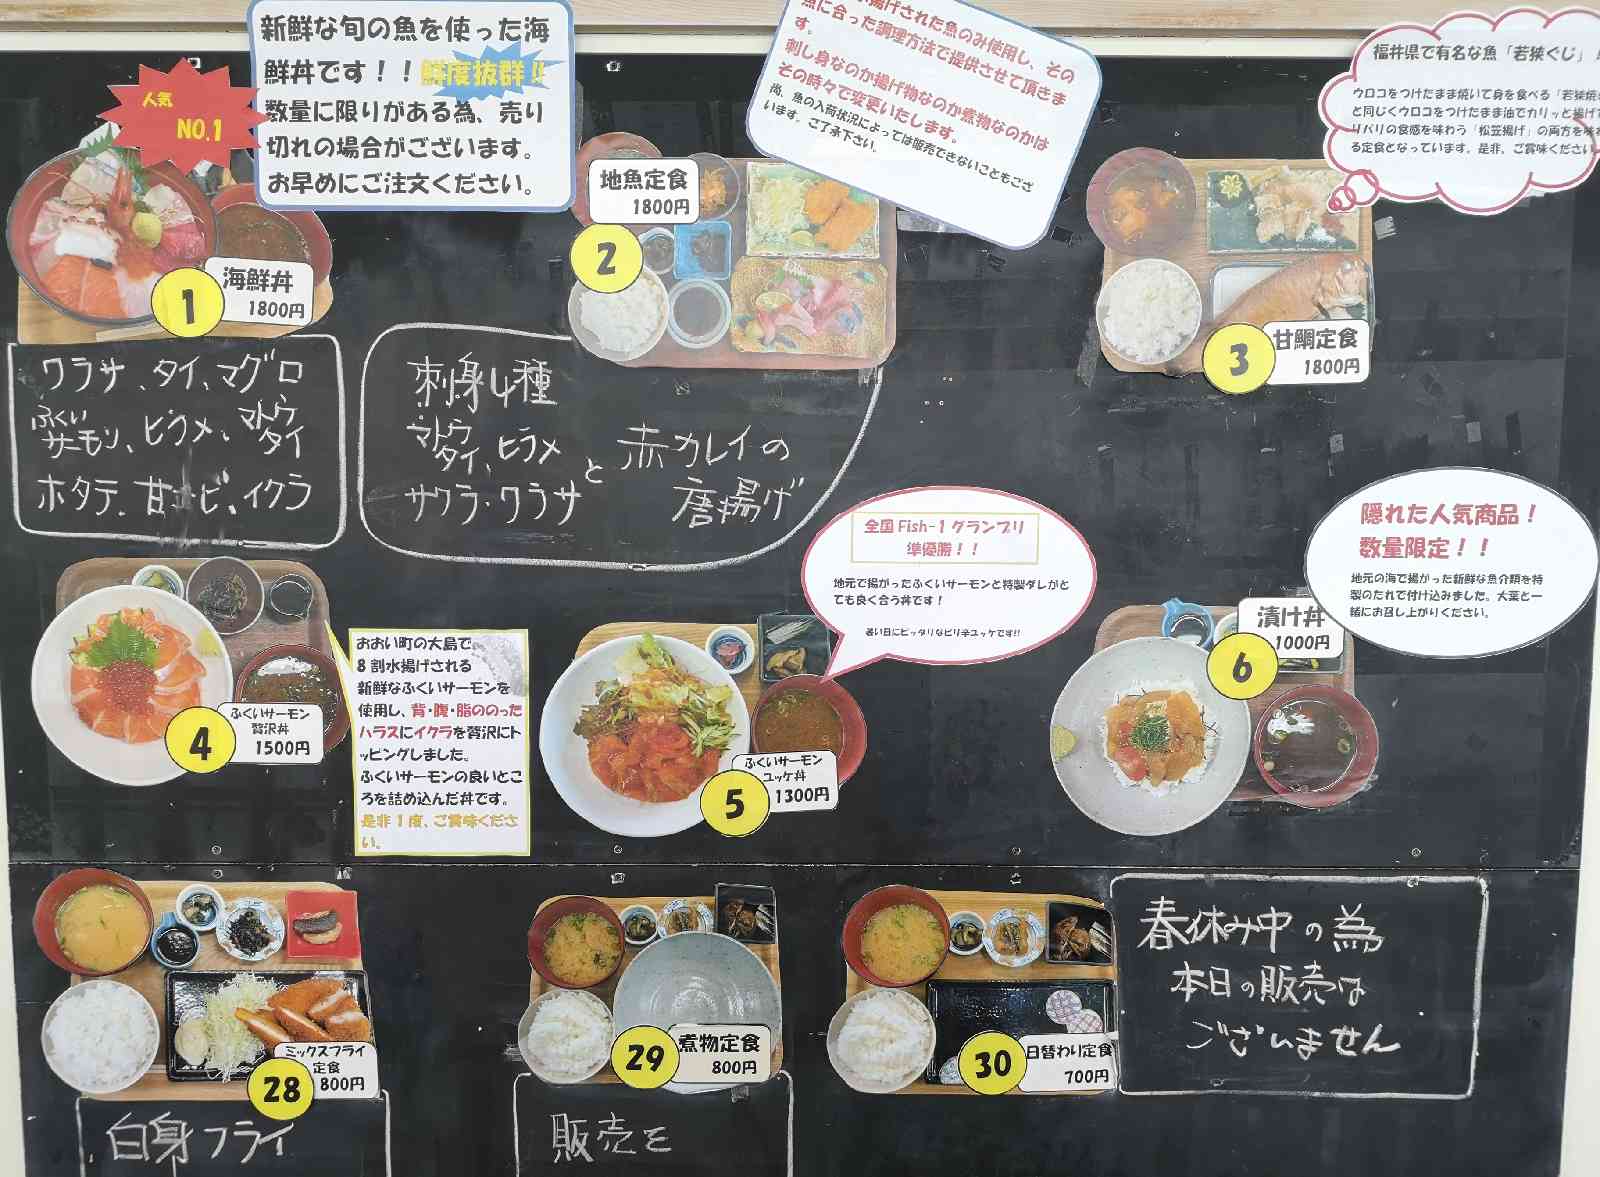 新鮮な旬の魚を使った海
鮮丼です！！鮮度抜群!!
数量に限りがある為、売り
切れの場合がございます。
お早めにご注文ください。
人気
NO.1
1
海鮮丼
1800円
ワラサ、タイ、マグロ
ふくい
サーモン、ヒラメ、マトウ
タイ
ホタテ、甘エビ、イクラ
揚げされた魚のみ使用し、その
魚に合った調理方法で提供させて頂きま
す。
刺し身なのか揚げ物なのか煮物なのかは
その時々で変更いたします。
尚、魚の入荷状況によっては販売できないこともござ
います。ご了承下さい。
地魚定食
1800円
2
刺身4種
マトウ
タイ、ヒラメ
サワラ・ワラサ
と
赤カレイの
唐揚げ
福井県で有名な魚「若狭ぐじ」！
ウロコをつけたまま焼いて身を食べる「若狭焼
と同じくウロコをつけたまま油でカリッと揚げ
リパリの食感を味わう「松笠揚げ」の両方を味
る定食となっています。是非、ご賞味ください
3
甘鯛定食
1800円
4
ふくいサーモン
贅沢丼
1500円
おおい町の大島で
8割水揚げされる
新鮮なふくいサーモンを
使用し、背・腹・脂ののった
ハラスにイクラを贅沢にト
ッピングしました。
ふくいサーモンの良いとこ
ろを詰め込んだ丼です。
是非1度、ご賞味くださ
い。
全国Fish-1グランプリ
準優勝！！
地元で揚がったふくいサーモンと特製ダレがと
ても良く合う丼です！
暑い日にピッタリなピリ辛ユッケです!!
5
ふくいサーモン
ユッケ丼
1300円
隠れた人気商品！
数量限定！！
地元の海で揚がった新鮮な魚介類を特
製のたれで付け込みました。大葉と一
緒にお召し上がりください。
漬け丼
1000円
6
ミックスフライ
定食
800円
28
白身フライ
29
煮物定食
800円
販売を
30
日替わり定食
700円
春休み中の為
本日の販売は
ございません